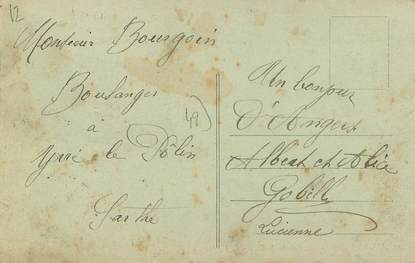 12
Monsieur Bourgoin
Boulanger
à
Yvré le Pôlin
Sarthe
49
Un bonjour
d'Angers
Albert et Alice
Gobille
Lucienne